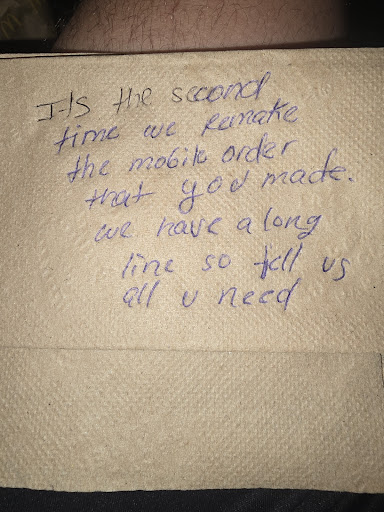 It's the second
time we Remake
the mobile order
that you made.
we have a long
line so tell us
all u need